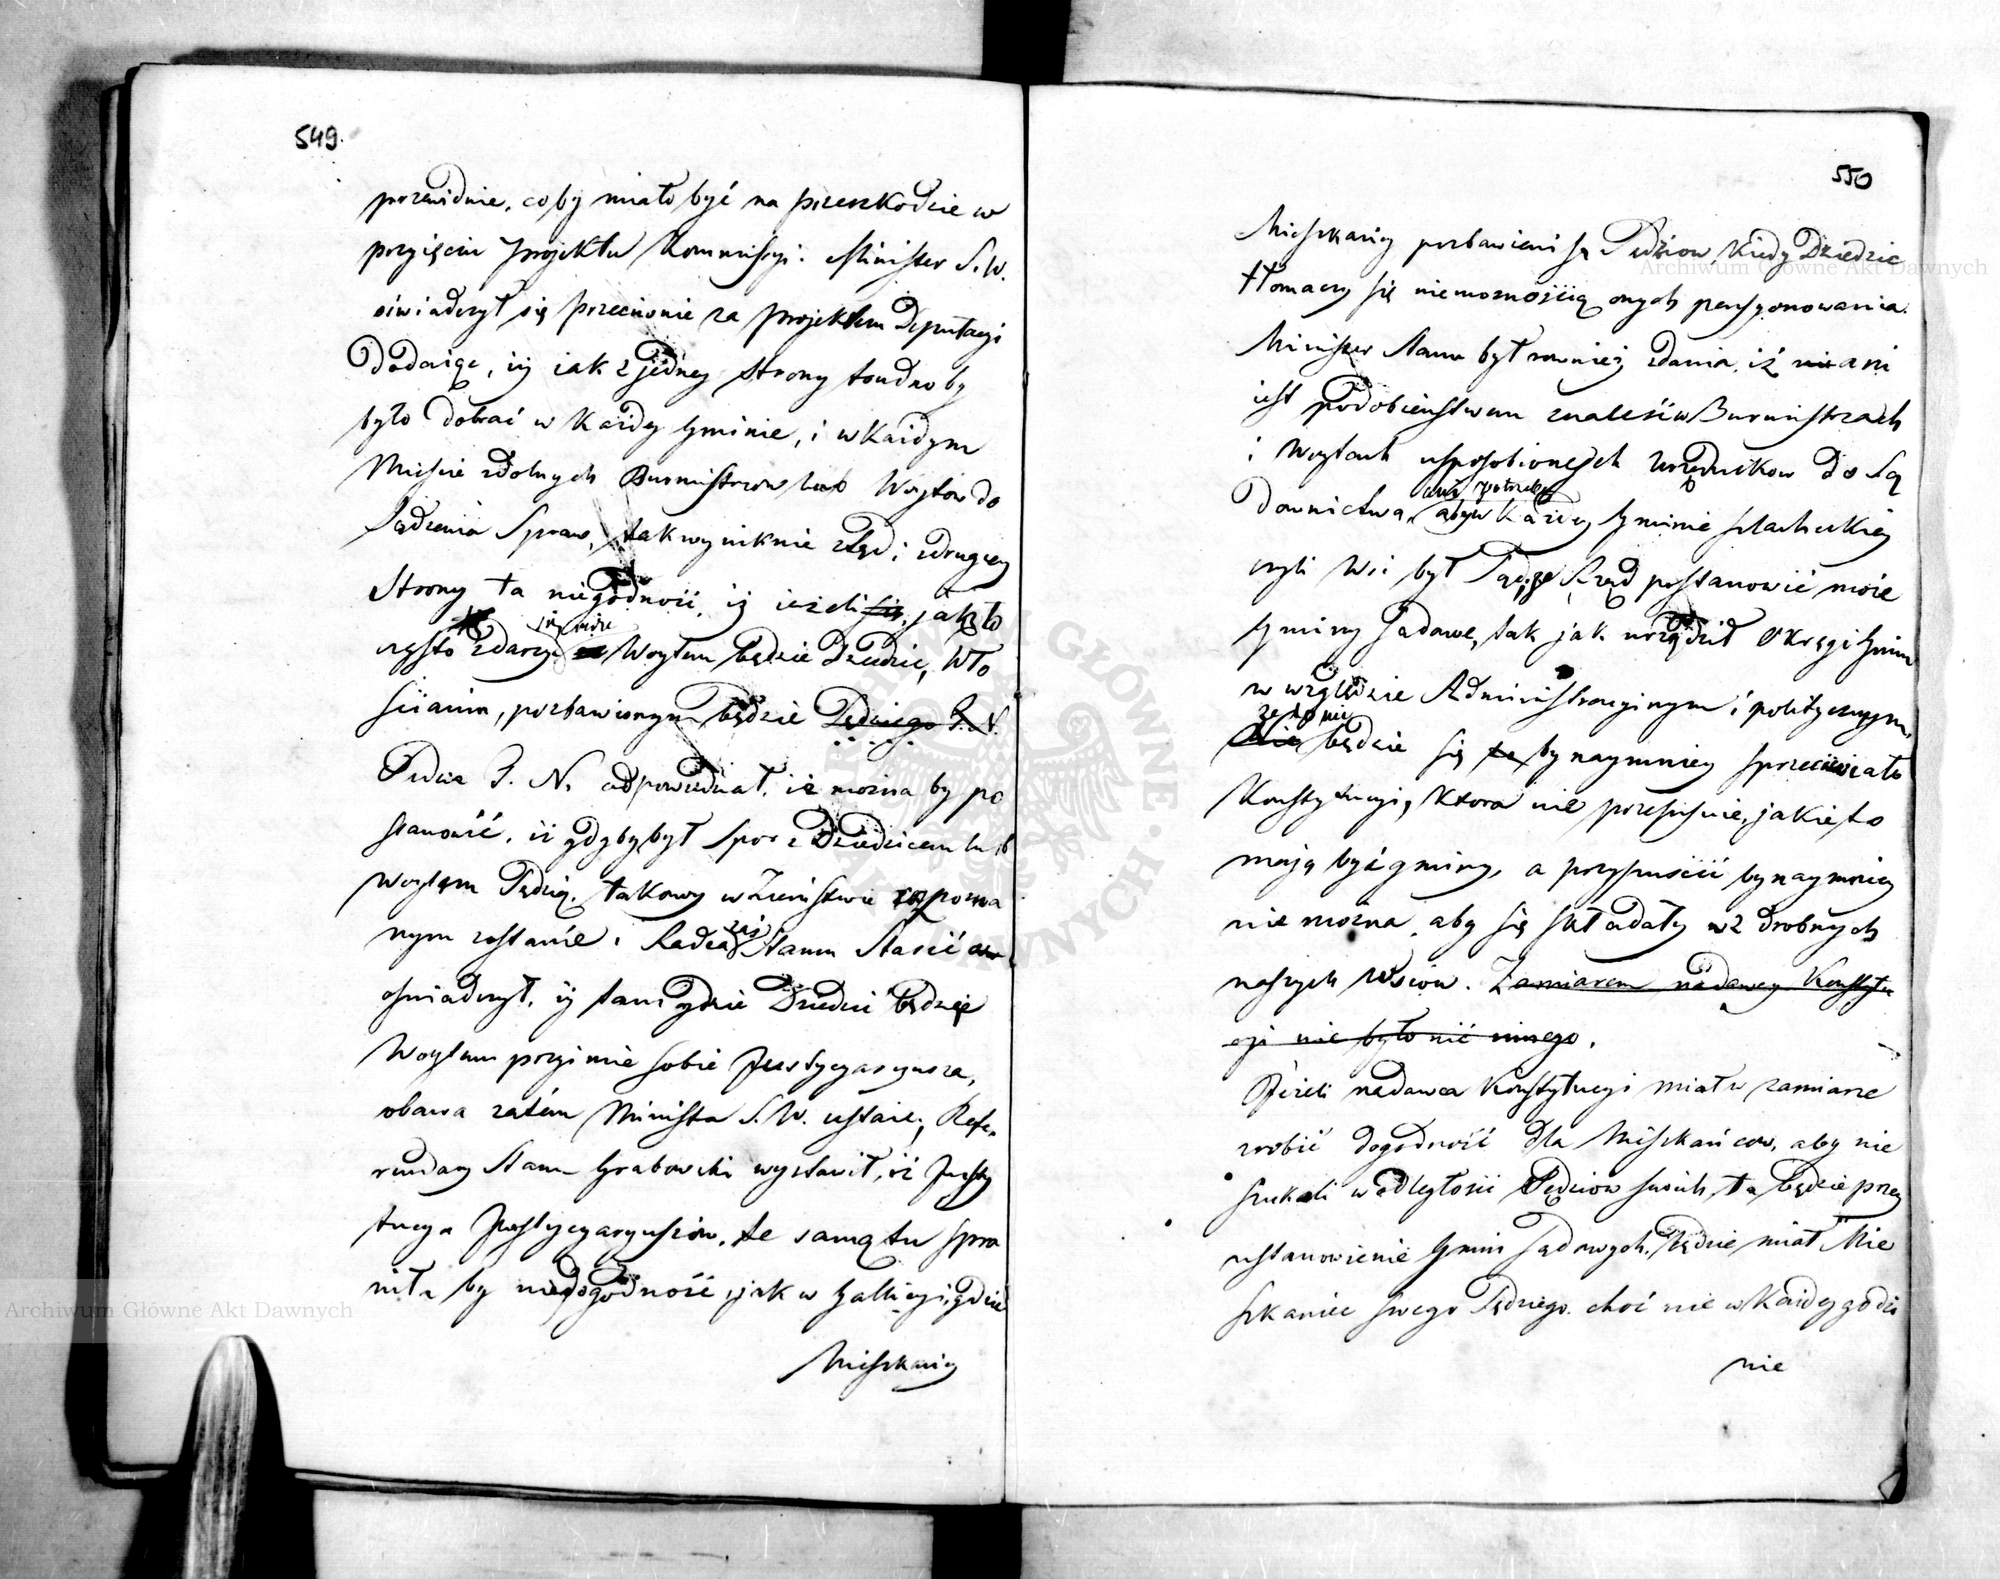 549.
przewidnie, coby miało być na przeszkodzie w
przyięciu projektu Kommissyi. Minister S. W.
oświadczył się przeciwnie za projektem Deputacyi
Dodaiąc, iż iak z jedney strony trudno by
było dobrać w każdey Gminie, i w Każdym
Mieście zdolnych Burmistrzow lub Woytów do
Sądzenia Spraw, tak wyniknie ztąd i z drugiey
Strony ta niegodność, iż ieżeli się, jak to
często zdarzyć się może Woytem będzie Dziedzic, Wło
ścianin, pozbawionym będzie Sędziego P. N.
Sędzia P. N. odpowiedział, iż można by po
stanowić, iż gdyby był Spor z Dziedzicem lub
woytem Sędzią, takowy w Ziemstwie rozpozna
nym zostanie. Radca zaś Stanu Stasic
oświadczył, iż tam gdzie Dziedzic będzie
Woytem przyimie sobie Justycyaryusza,
obawa zatém Ministra S. W. ustaie; Refe-
rendarz Stanu Grabowski wystawił, iż Insty
tucya Justycyaryuszów, tę samą tu spra
wiła by niedogodność, jak w Gallicyi, gdzie
Mieszkańcy
550
Mieszkańcy pozbawieni są Sędziow, kiedy Dziedzic
tłomaczy się niemożnością onych pensyonowania.
Minister Stanu był rownież zdania, iż nie ani
iest podobieństwem znaleść w Burmistrzach
i Woytach usposobionych Urzędnikow do Są
downictwa, ani potrzeby aby w Każdey Gminie szlacheckiey
czyli Wsi był Sędzia, Rząd postanowić może
Gminy Sądowe, tak jak urządził Okręgi Gmin
w względzie Administracyinym i politycznym,
Nie że to nie będzie się to bynaymniey sprzeciwiało
Konstytucyi, która nie przepisuie, jakie to
mają być gminy, a przypuścić bynaymniey
nie można, aby się składały z drobnych
naszych Wsiow. Zamiarem nadawcy Konstytu
cyi nie było nic innego.
Jeżeli nadawca Konstytucyi miał w zamiarze
zrobić dogodność dla Mieszkańcow, aby nie
szukali w odległości Sędziow swoich, ta będzie przez
ustanowienie Gmin Sądowych, będzie miał Mie
szkaniec swego Sędziego, choć nie w Każdey godzi
nie
Archiwum Główne Akt Dawnych
Archiwum Główne Akt Dawnych